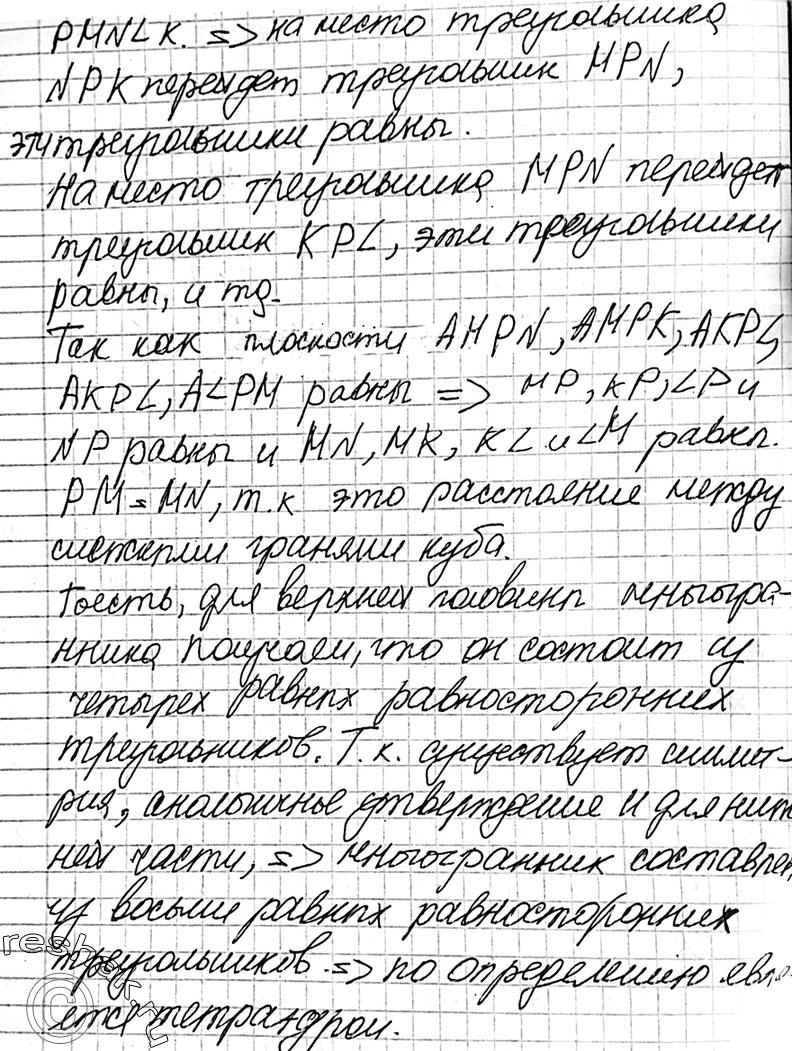 PMNLK. => на место треугольника
NPK перейдет треугольник MPN,
эти треугольники равны.
На место треугольника MPN перейдет
треугольник KPL, эти треугольники
равны, и тд.
Так как плоскости AMPN, AMPK, AKPL,
AKPL, ALPM равны => MP, KP, LP и
NP равны и MN, MK, KL и LM равны.
PM = MN, т.к это расстояние между
смежными гранями куба.
Тоесть, для верхней половины многогра-
нника получаем, что он состоит из
четырех равных равносторонних
треугольников. Т.к. существует симмет-
рия, аналогичное утверждение и для ниж
ней части, => многогранник составлен
из восьми равных равносторонних
треугольников. => по определению явля-
ется тетраэдром.
reshak.ru
©